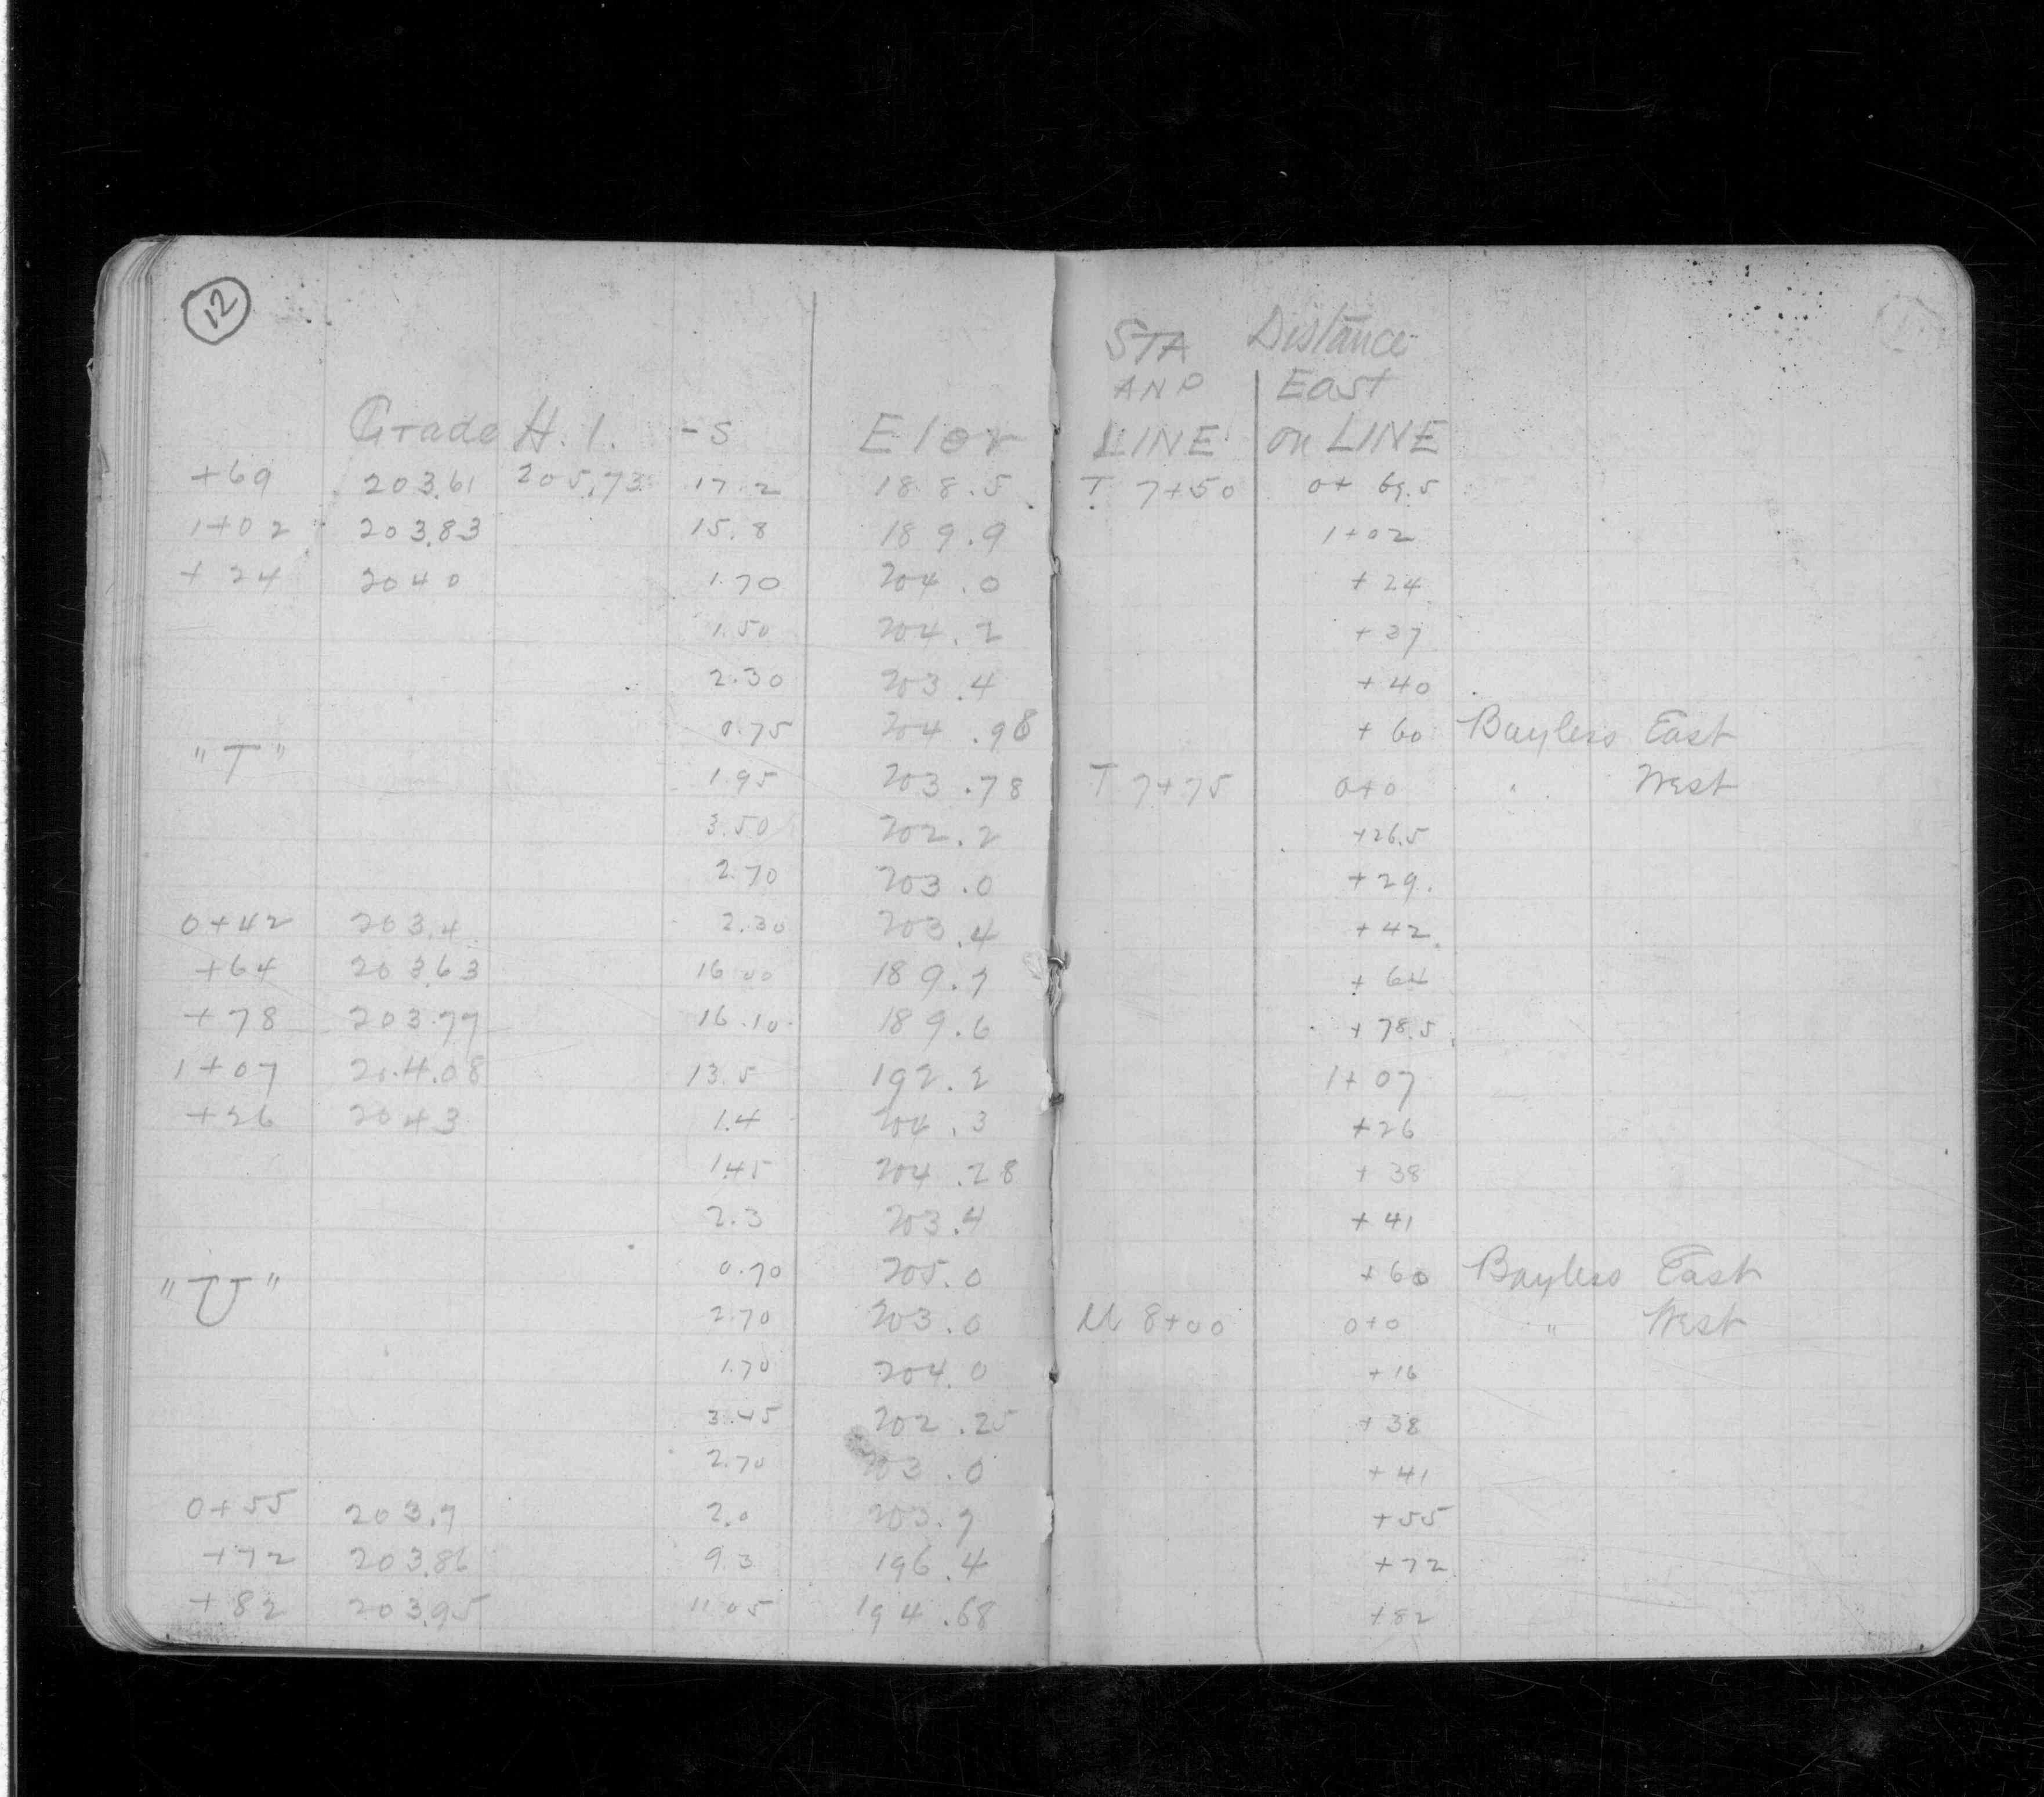 12
STA Distance
AND East
Grade H.I. -S Elev LINE on LINE
+69 203.61 205.73 17.2 188.5 T 7+50 0+ 69.5
1+02 203.83 15.8 189.9 1+02
+24 204 0 1.70 204.0 +24
1.50 204.2 +37
2.30 203.4 +40
0.75 204.98 +60 Bayless East
"T" 1.95 203.78 T 7+75 0+0 " West
3.50 202.2 +26.5
2.70 203.0 +29.
0+42 203.4 2.30 203.4 +42
+64 203.63 16 00 189.7 +64
+78 203.77 16.10 189.6 +78.5
1+07 204.08 13.5 192.2 1+07
+26 204 3 1.4 204.3 +26
1.45 204.28 +38
2.3 203.4 +41
0.70 205.0 +60 Bayless East
"U" 2.70 203.0 U 8+00 0+0 " West
1.70 204.0 +16
3.45 202.25 +38
2.70 203.0 +41
0+55 203.7 2.0 203.7 +55
+72 203.86 9.3 196.4 +72
+82 203.95 11.05 194.68 +82